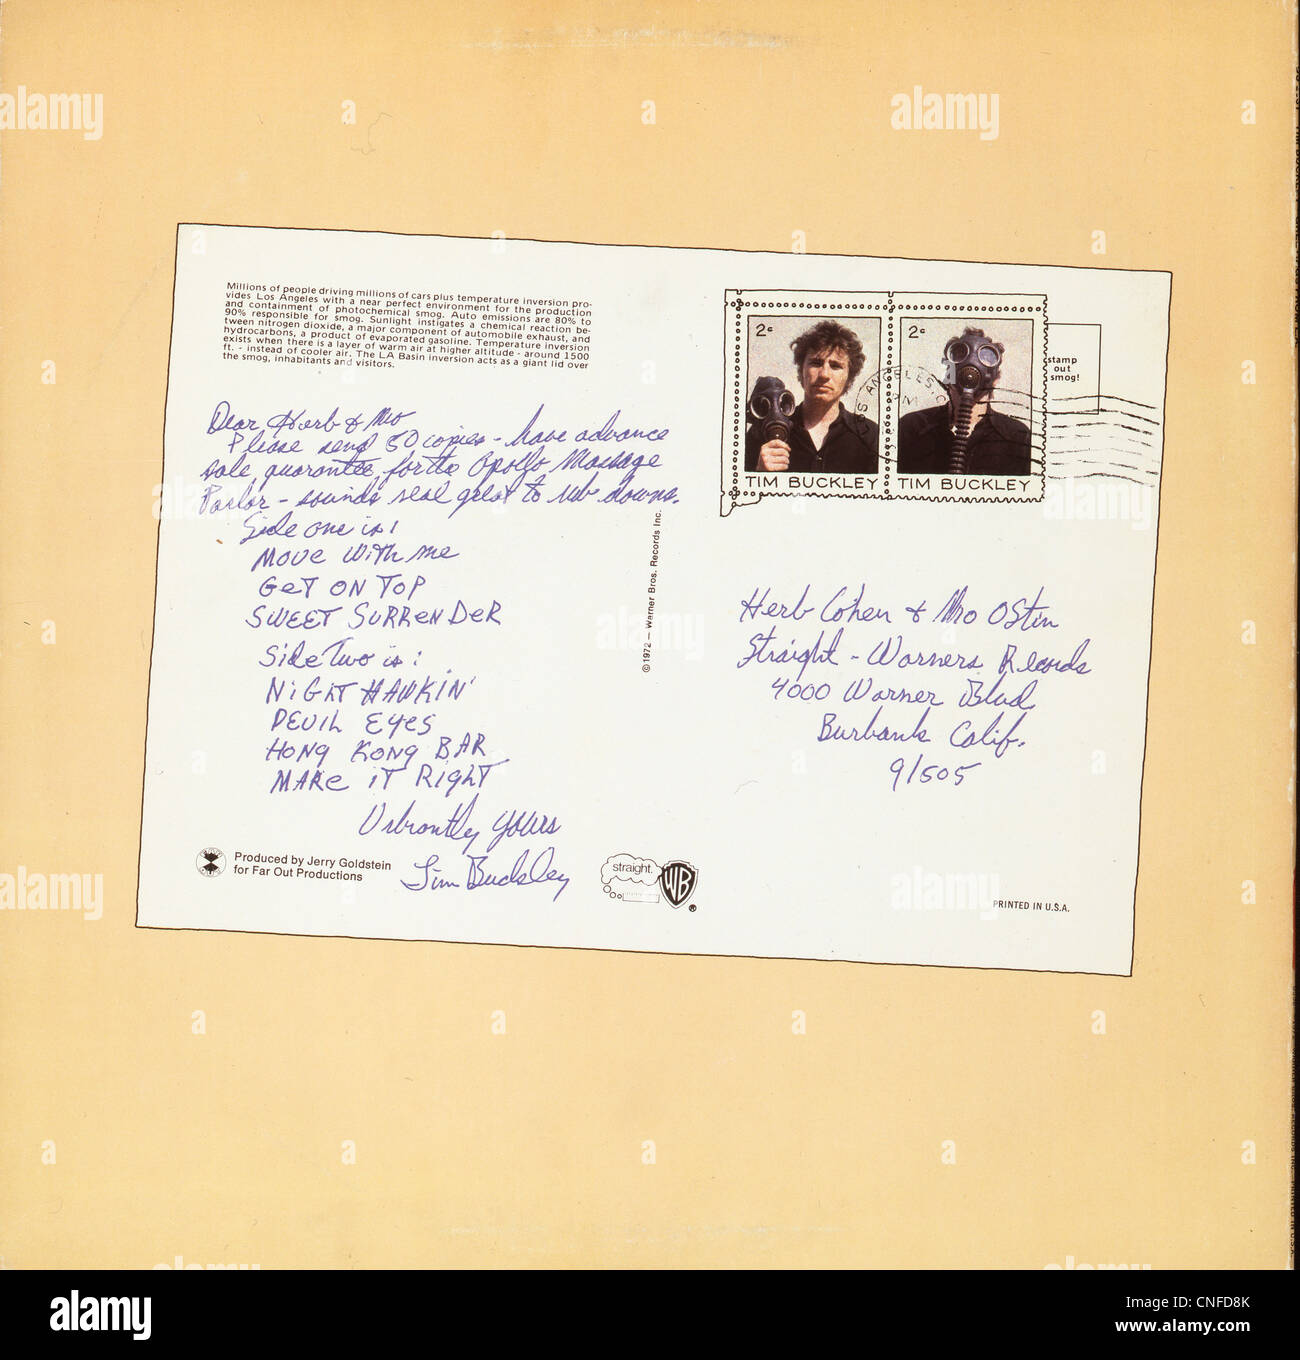 Millions of people driving millions of cars plus temperature inversion pro-
vides Los Angeles with a near perfect environment for the production
and containment of photochemical smog. Auto emissions are 80% to
90% responsible for smog. Sunlight instigates a chemical reaction be-
tween nitrogen dioxide, a major component of automobile exhaust, and
hydrocarbons, a product of evaporated gasoline. Temperature inversion
exists when there is a layer of warm air at higher altitude - around 1500
ft. - instead of cooler air. The LA Basin inversion acts as a giant lid over
the smog, inhabitants and visitors.
Dear Herb & Mo
Please send 50 copies - have advance
sale guarantee for the Apollo Massage
Parlor - sounds real great to rub downs.
Side one is!
MOVE WITH Me
GeT ON TOP
SWEET SURReNDeR
Side Two is:
NiGHT HAWKiN'
DEVIL EYeS
HONg KONg BAR
MAKe iT RigHT
Vibrantly yours
Tim Buckley
Produced by Jerry Goldstein
for Far Out Productions
straight.
WB
®
©1972 — Warner Bros. Records Inc.
2c
2c
TIM BUCKLEY
TIM BUCKLEY
LOS ANGELES, C
AM
stamp
out
smog!
Herb Cohen & Mo Ostin
Straight - Warners Records
4000 Warner Blvd
Burbank Calif.
91505
PRINTED IN U.S.A.
a
alamy
alamy
Image ID: CNFD8K
www.alamy.com